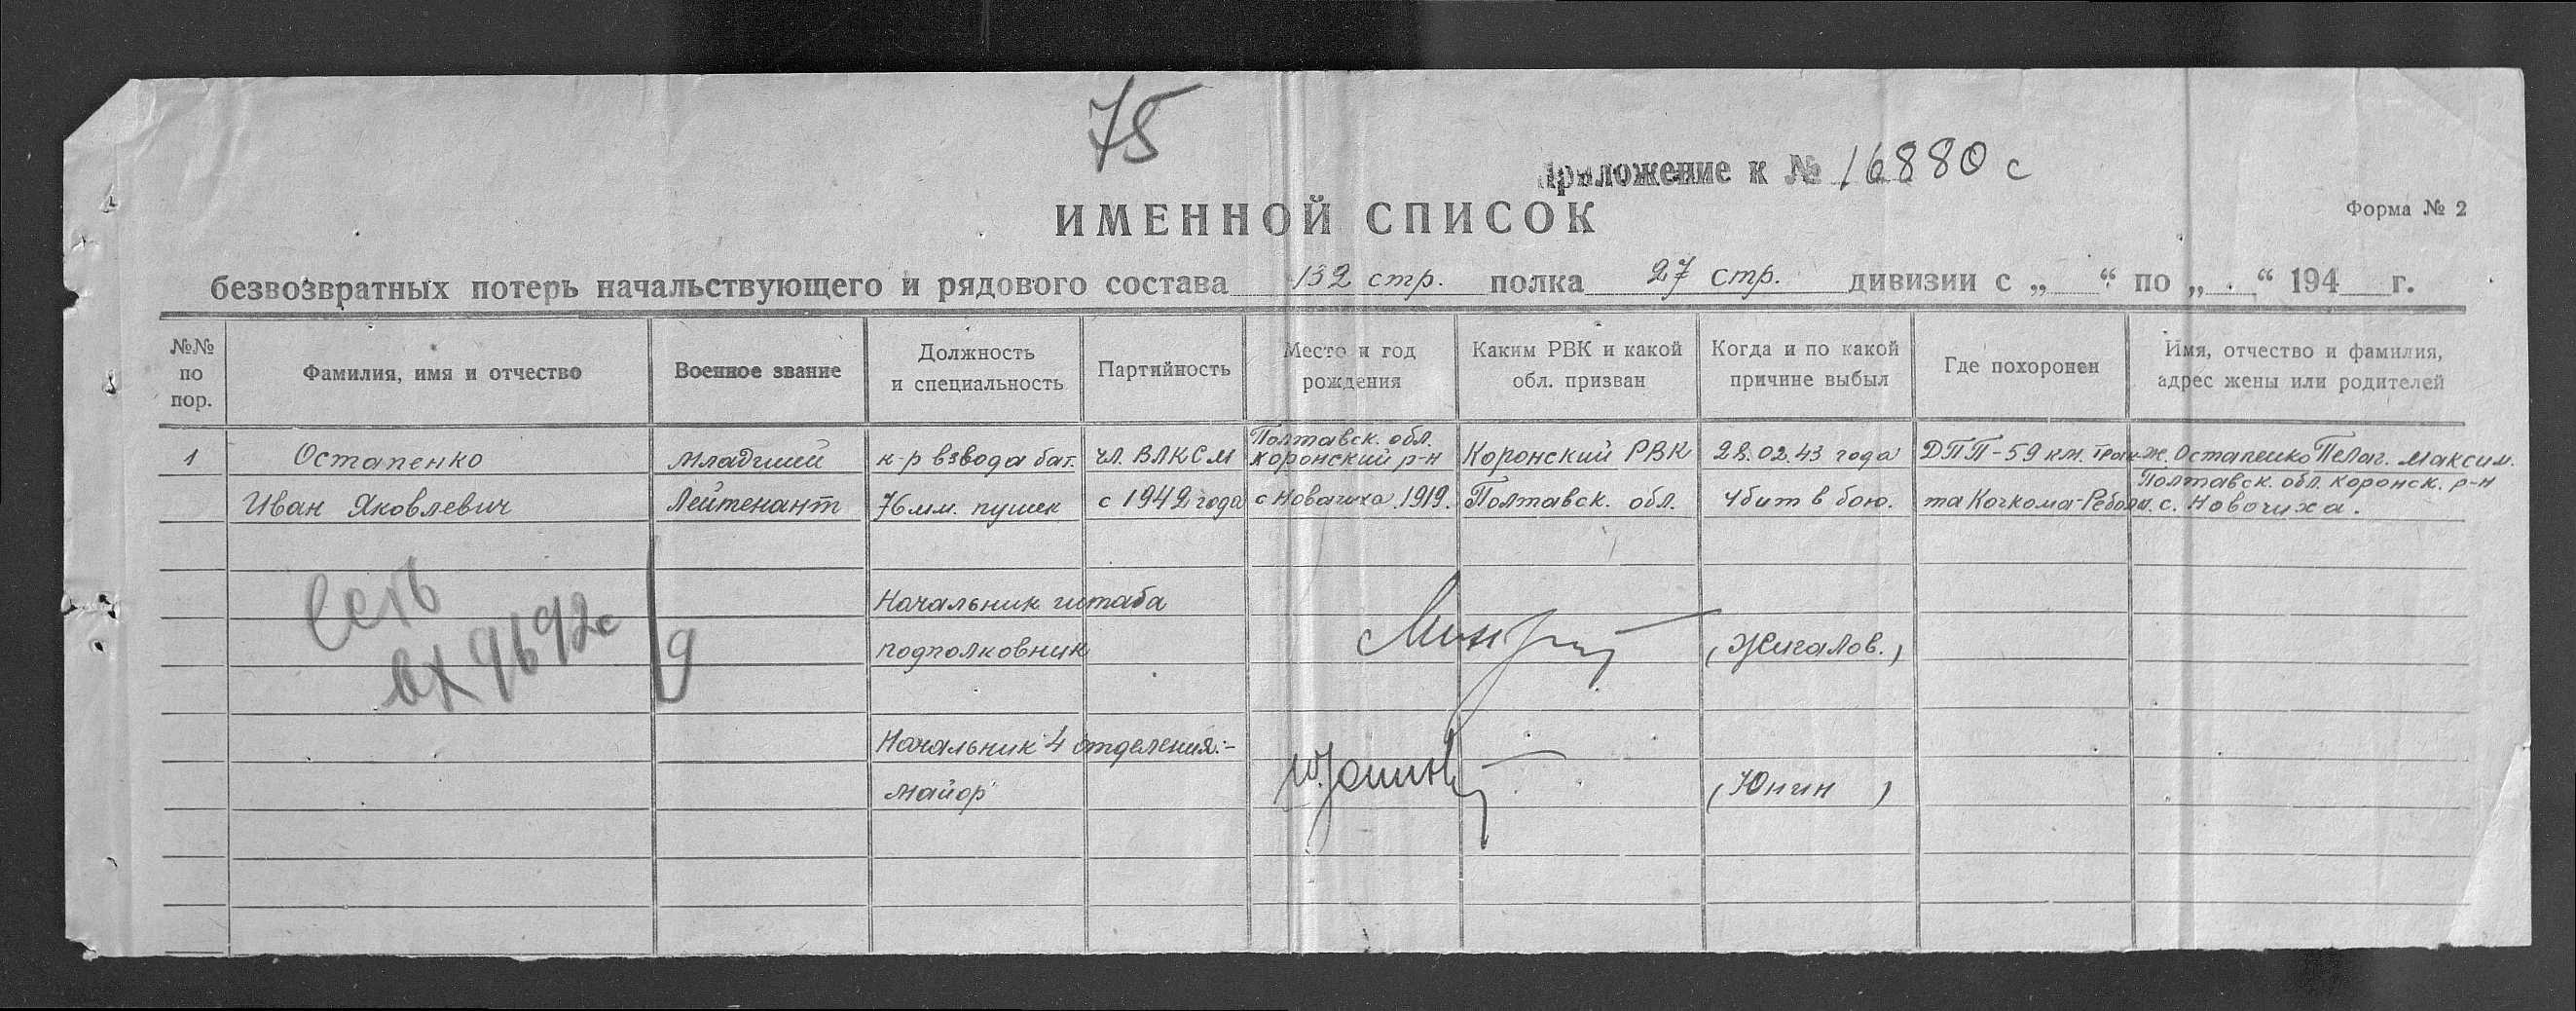 75
Приложение к № 16880 с
ИМЕННОЙ СПИСОК
Форма № 2
безвозвратных потерь начальствующего и рядового состава 132 стр. полка 27 стр. дивизии с „ “ по „ “ 194 г.
№№ по пор.
Фамилия, имя и отчество
Военное звание
Должность и специальность
Партийность
Место и год рождения
Каким РВК и какой обл. призван
Когда и по какой причине выбыл
Где похоронен
Имя, отчество и фамилия, адрес жены или родителей
1
Остапенко
Иван Яковлевич
Младший
Лейтенант
к-р взвода бат.
76 мм. пушек
чл. ВЛКСМ
с 1942 года
Полтавск. обл.
Коронский р-н
с Новачиха 1919.
Коронский РВК
Полтавск. обл.
28.02.43 года
Убит в бою.
ДПП-59 км. трак
та Кочкома-Реболы
ж. Остапенко Пелаг. Максим.
Полтавск. обл. Коронск. р-н
с. Новочиха.
Есть
вх 9692с
Начальник штаба
подполковник
(Жигалов.)
Начальник 4 отделения:-
майор
(Юнин)